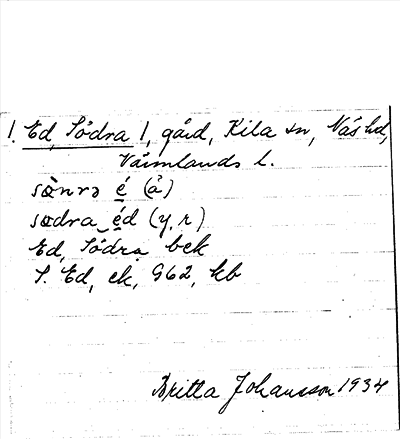 1. Ed, Södra 1, gård, Kila sn, Näs hd,
Värmlands l.
sœ̀nrə é (ä)
sœdra éd (y, r)
Ed, Södra bek
S. Ed, ek, 962, kb
Britta Johansson 1934